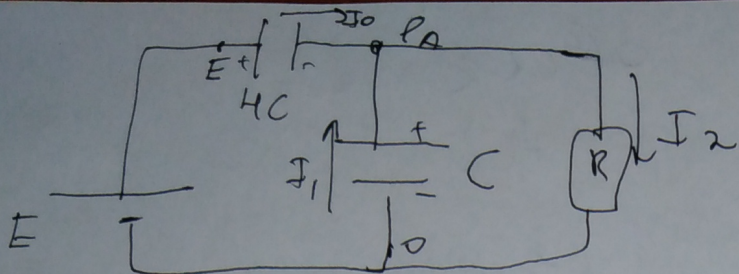 I0 φA
E + -
4C
I1 + C R I2
-
E 0